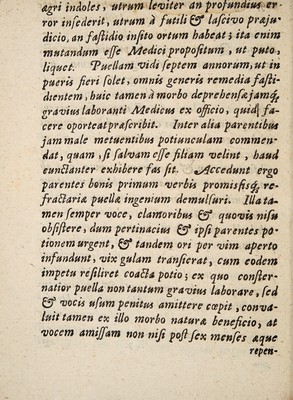 ægri indoles, utrum leviter an profundius er-
ror insederit, utrum à futili & lascivo præju-
dicio, an fastidio insito ortum habeat; ita enim
mutandum esse Medici propositum, ut puto,
liquet. Puellam vidi septem annorum, ut in
pueris fieri solet, omnis generis remedia fasti-
dientem, huic tamen à morbo deprehensæ jamq́;
gravius laboranti Medicus ex officio, quid fa-
cere oporteat præscribit. Inter alia parentibus
jam male metuentibus potiunculam commen-
dat, quam, si salvam esse filiam velint, haud
cunctanter exhibere fas sit. Accedunt ergo
parentes bonis primum verbis promissisq́; re-
fractariæ puellæ ingenium demulsuri. Illa ta-
men semper voce, clamoribus & quovis nisu
obsistere, dum pertinacius & ipsi parentes po-
tionem urgent, & tandem ori per vim aperto
infundunt, vix gulam transierat, cum eodem
impetu resiliret coacta potio; ex quo conster-
natior puella non tantum gravius laborare, sed
& vocis usum penitus amittere cœpit, conva-
luit tamen ex illo morbo naturæ beneficio, at
vocem amissam non nisi post sex menses æque
repen-